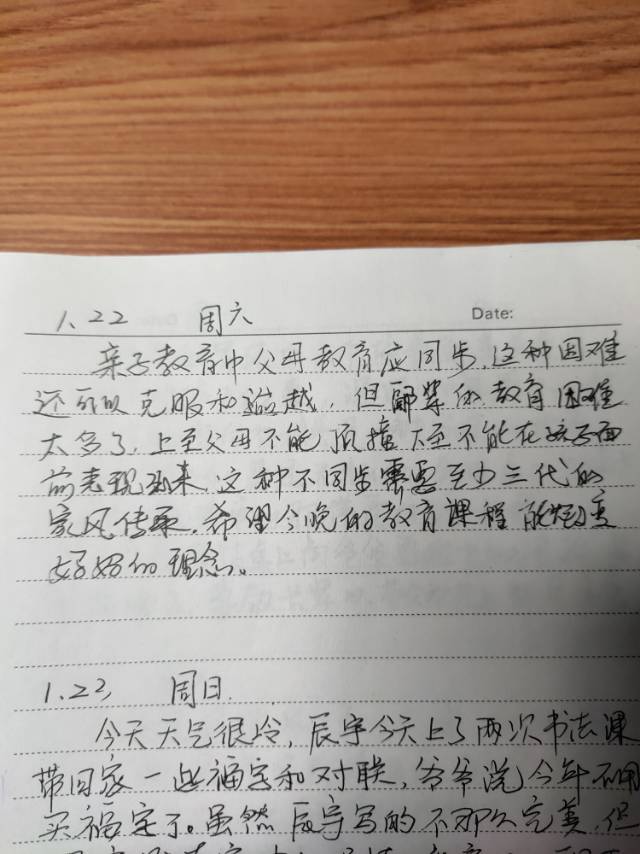 1.22 周六 Date:
亲子教育中父母教育应同步,这种困难
还可以克服和逾越,但 的教育困难
太多了,上至父母不能顶撞 不能在孩子面
前表现出来,这种不同步需要至少三代的
家风传承,希望今晚的教育课程能
好妈的理念。
1.23, 周日.
今天天气很冷,辰宇今天上了两次书法课
带回家一些福字和对联,爷爷说今年不用
买福字了。虽然辰宇写的不那么完美,但